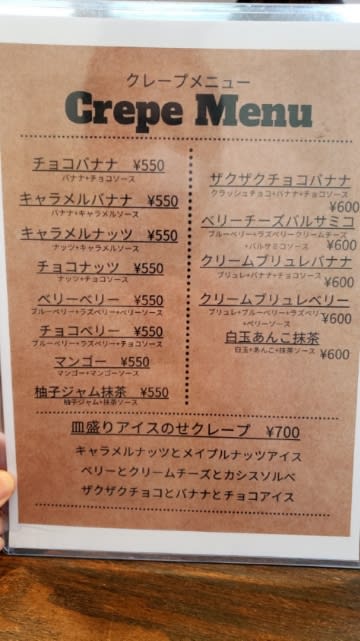 クレープメニュー
Crepe Menu
チョコバナナ ¥550
バナナ+チョコソース
キャラメルバナナ ¥550
バナナ+キャラメルソース
キャラメルナッツ ¥550
ナッツ+キャラメルソース
チョコナッツ ¥550
ナッツ+チョコソース
ベリーベリー ¥550
ブルーベリー+ラズベリー+ベリーソース
チョコベリー ¥550
ブルーベリー+ラズベリー+チョコソース
マンゴー ¥550
マンゴー+マンゴーソース
柚子ジャム抹茶 ¥550
柚子ジャム+抹茶ソース
ザクザクチョコバナナ
クラッシュチョコ+バナナ+チョコソース
¥600
ベリーチーズバルサミコ
ブルーベリー+ラズベリークリームチーズ
+バルサミソース ¥600
クリームブリュレバナナ
ブリュレ+バナナ+チョコソース
¥600
クリームブリュレベリー
ブリュレ+ブルーベリー+ラズベリー
+ベリーソース ¥600
白玉あんこ抹茶
白玉+あんこ+抹茶ソース ¥600
皿盛りアイスのせクレープ ¥700
キャラメルナッツとメイプルナッツアイス
ベリーとクリームチーズとカシスソルベ
ザクザクチョコとバナナとチョコアイス